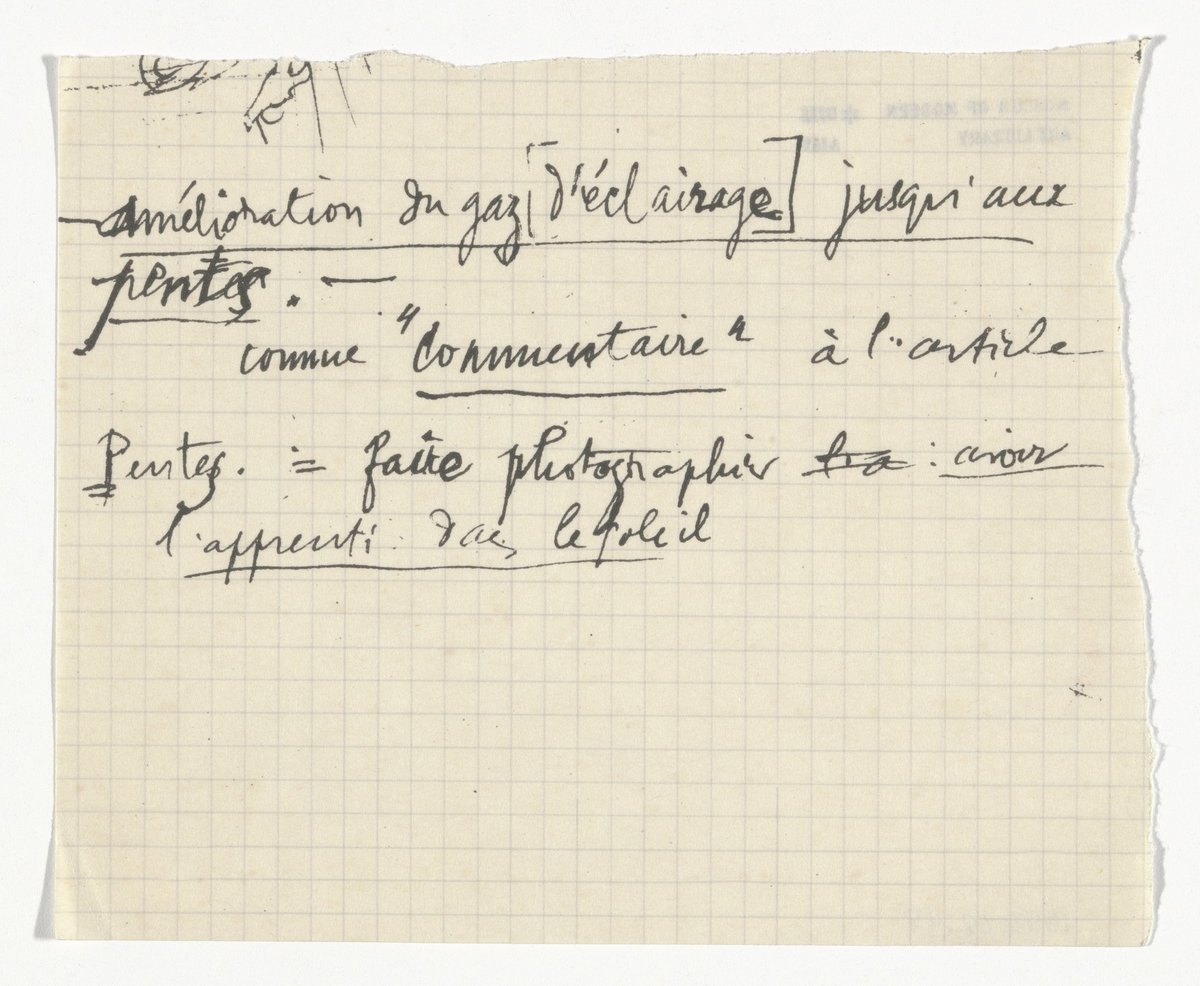 Amélioration du gaz [d'éclairage] jusqu'aux
pentes. —
comme "Commentaire" à l'article
Pentes. = faire photographier : avoir
l'apprenti dans le soleil